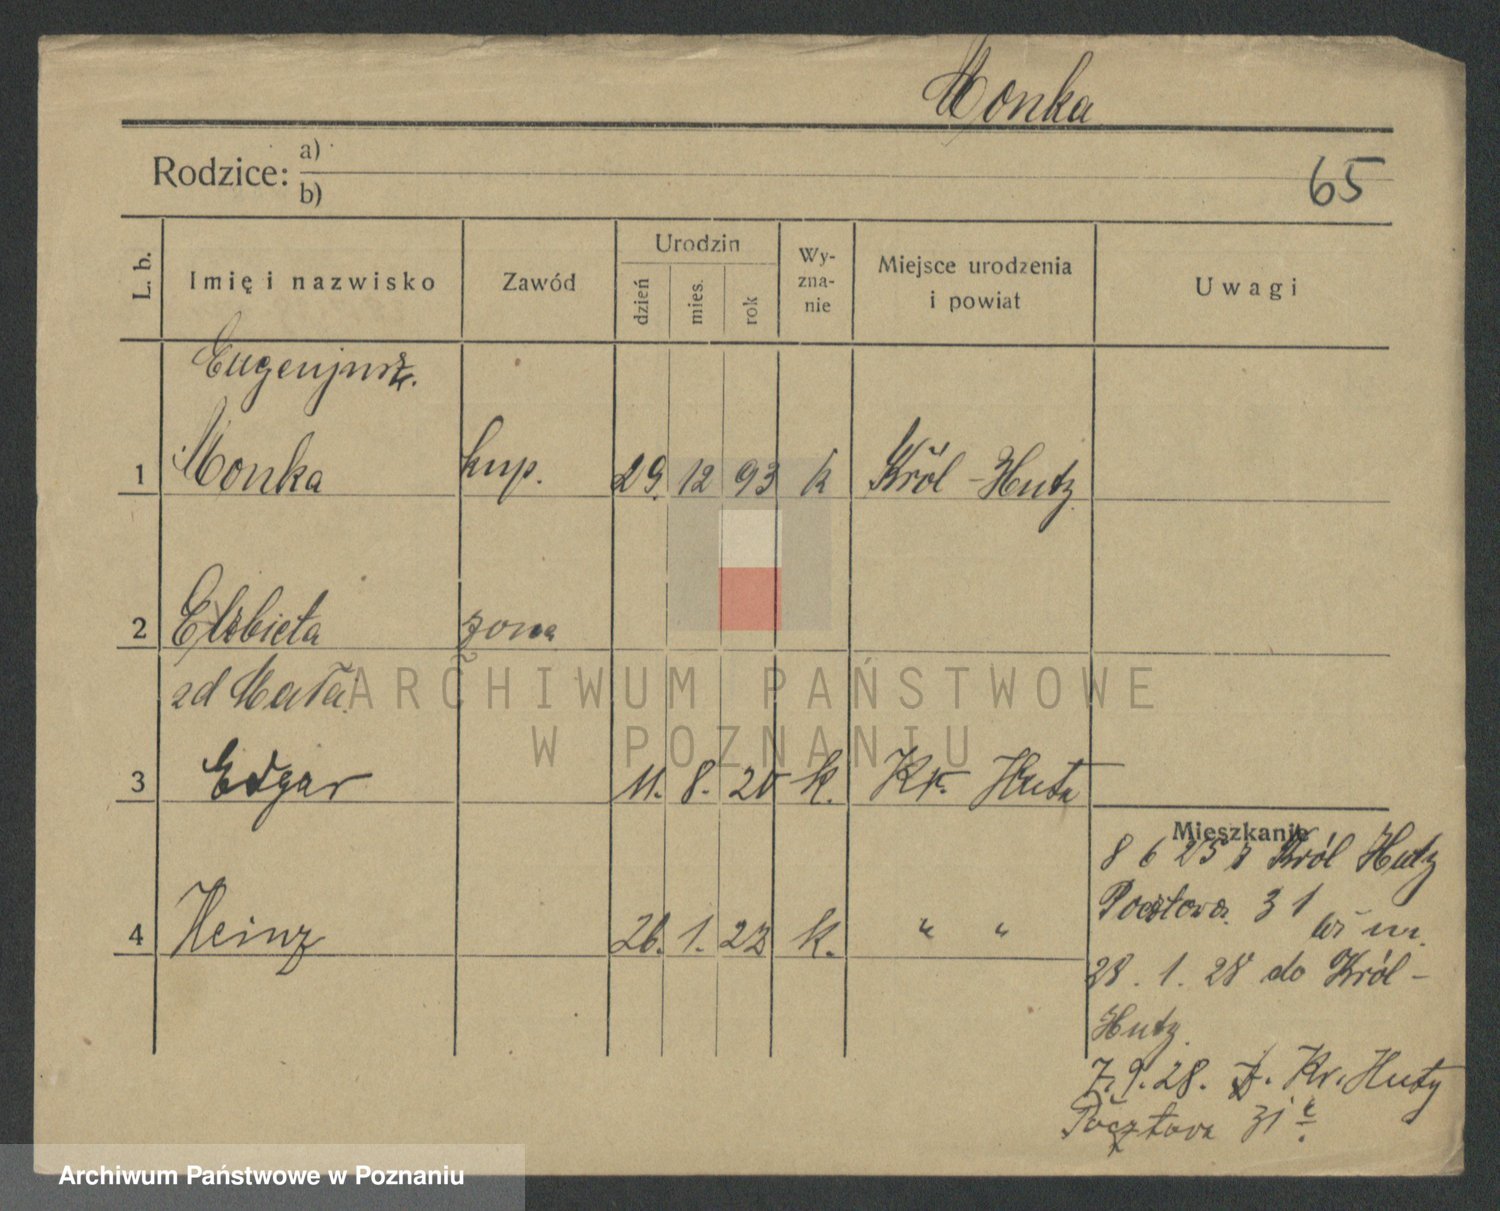 Monka
Rodzice: a)
b)
65
L. b. Imię i nazwisko Zawód Urodzin dzień mies. rok Wy-zna-nie Miejsce urodzenia i powiat Uwagi
Eugenjusz.
1 Monka kup. 29. 12 93 k Król-Hutz
2 Elżbieta żona
zd Mała
3 Edgar 11. 8. 20 k. Kr. Huta
4 Heinz 26. 1. 22 k. " "
Mieszkanie
8 6 25 z Król Hutz
Pocztowa 31
28. 1. 28 do Król-
Hutz.
7.9.28. Kr. Huty
Pocztowa 31
ARCHIWUM PAŃSTWOWE
W POZNANIU
Archiwum Państwowe w Poznaniu